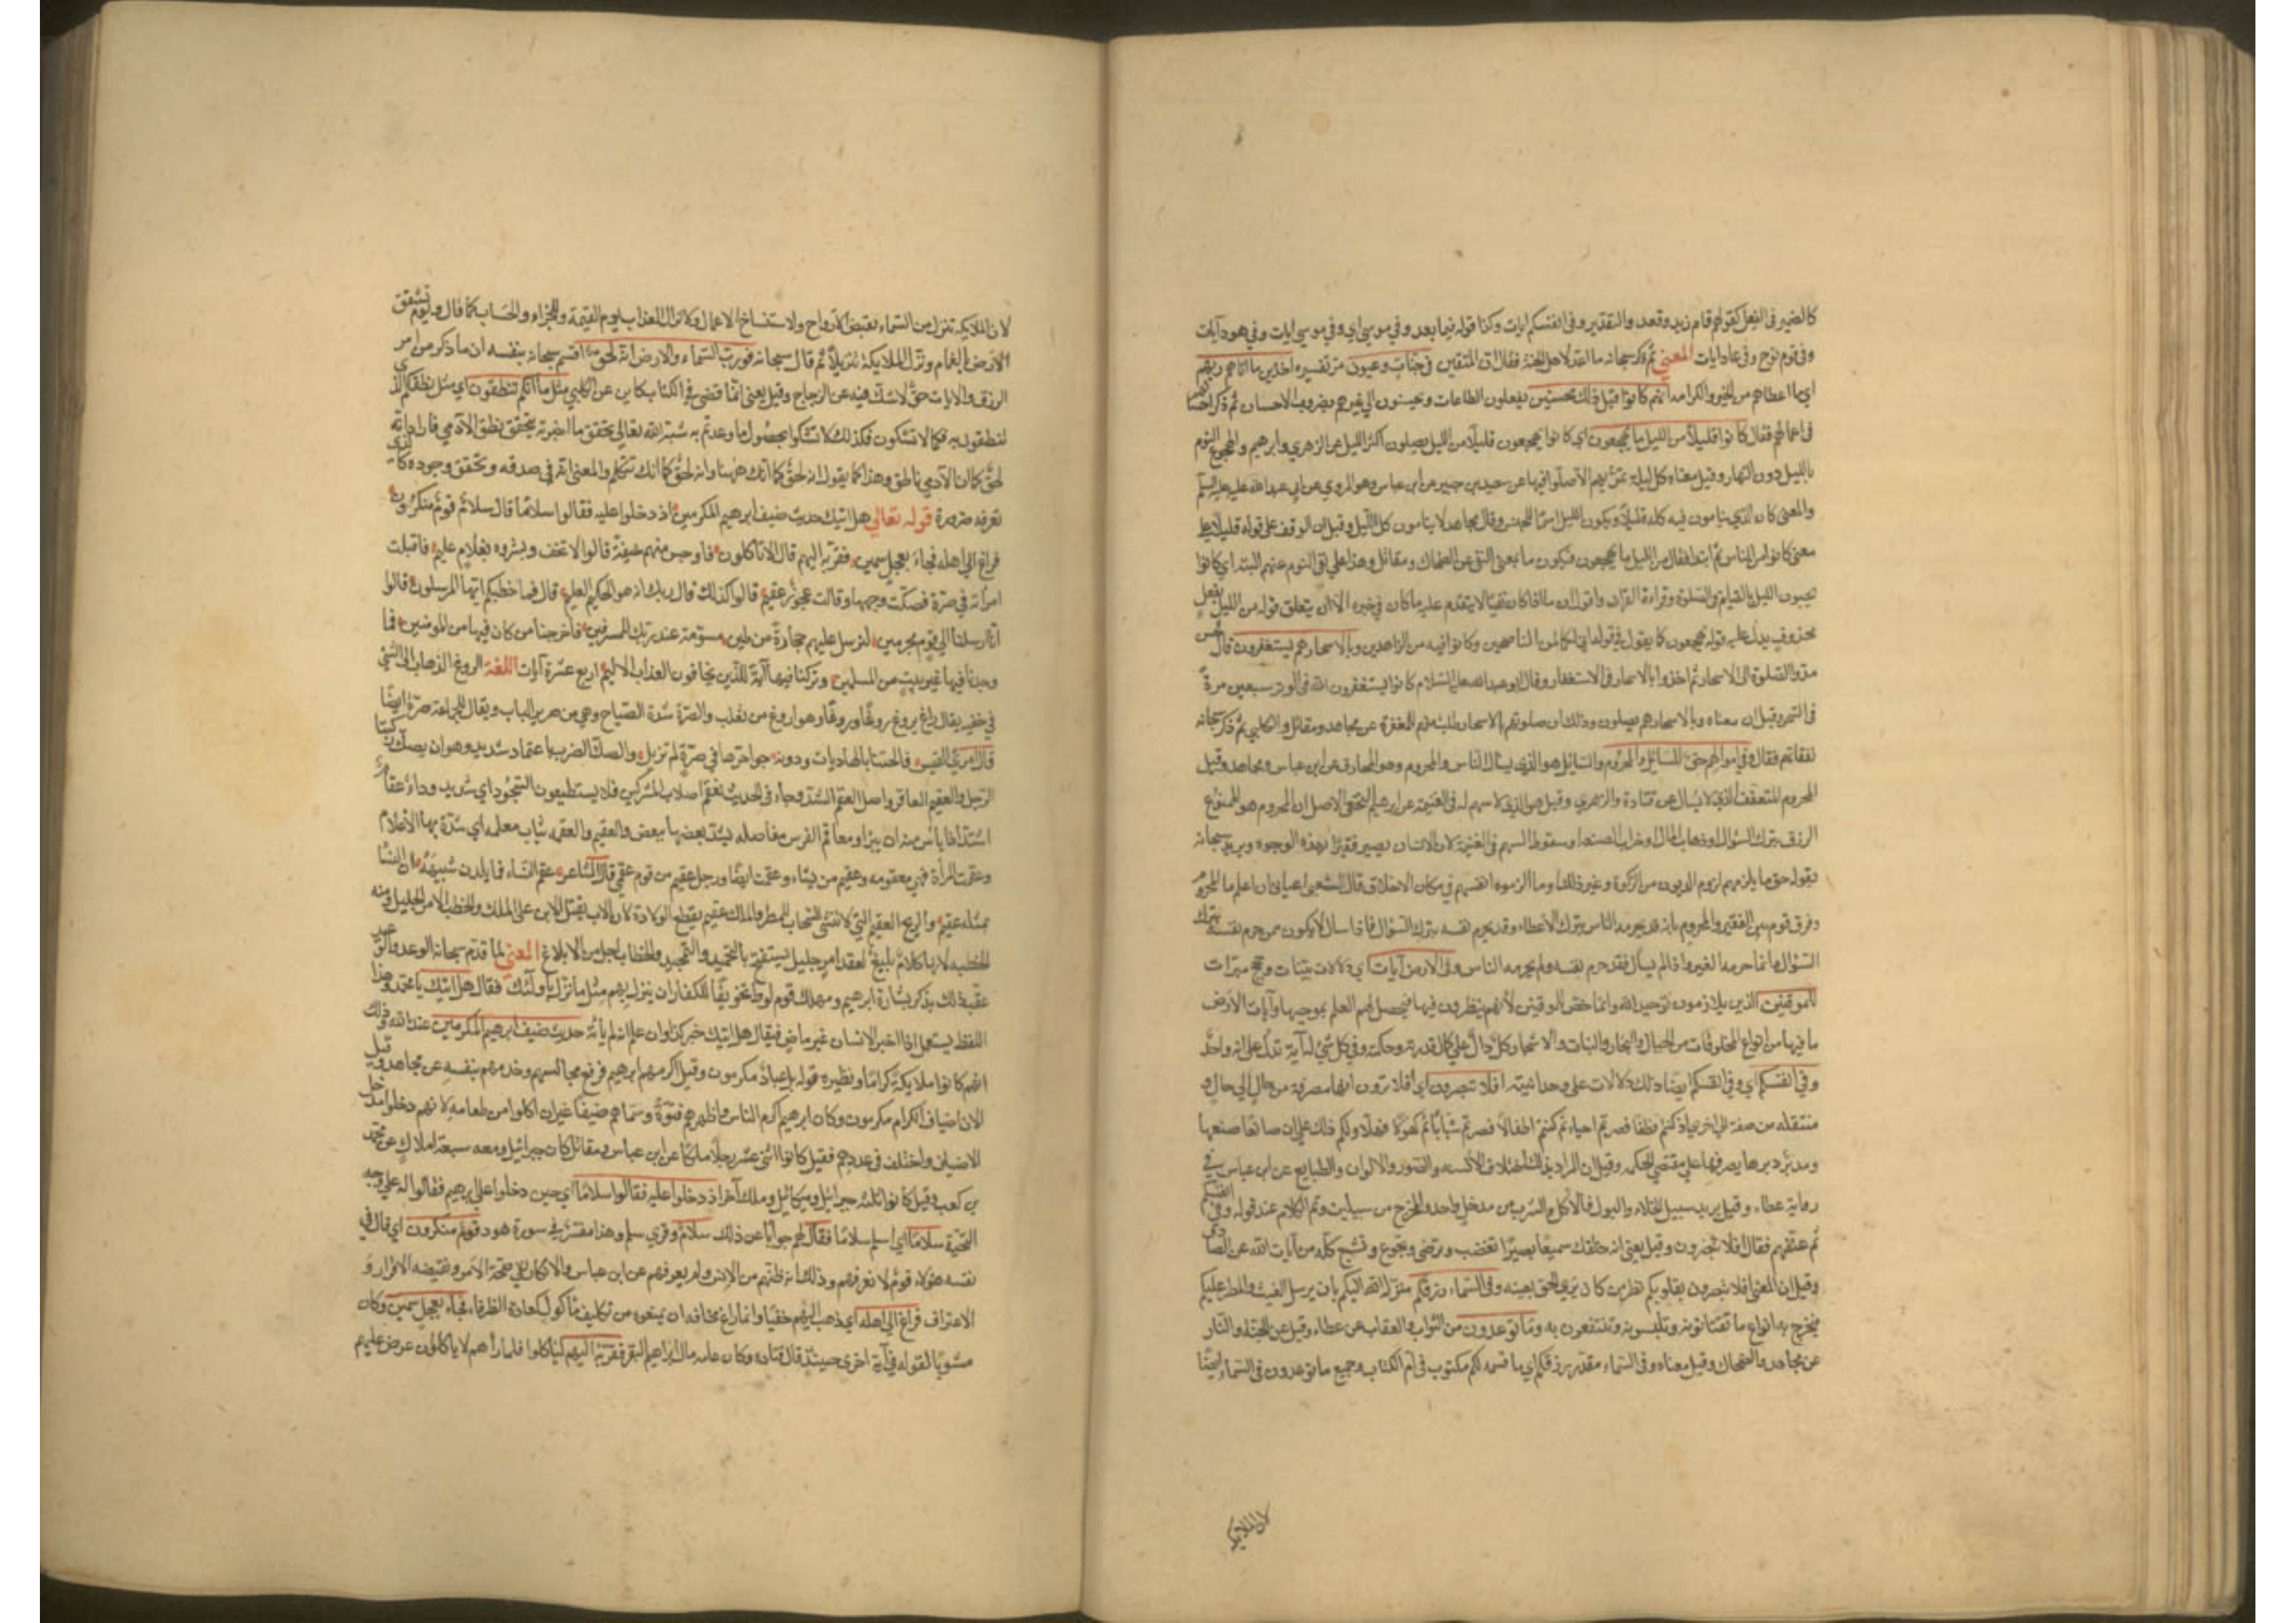 كالضمير في الفعل كقولهم قام زيد وقعد والتقدير وفي انفسكم ايات وكذا قوله فيما بعد وفي موسى اي وفي موسى ايات وفي هود آيات
وفي قوم نوح وفي عاد ايات المعنى ثم ذكر سبحانه ما اعد لاهل الجنة فقال ان المتقين في جنات وعيون مر تفسيره اخذين ما اتاهم ربهم
اي ما اعطاهم من الخير والكرامه انهم كانوا قبل ذلك محسنين يفعلون الطاعات ويحسنون الى غيرهم بضروب الاحسان ثم ذكر احسانهم
في اعمالهم فقال كانوا قليلا من الليل ما يهجعون اي كانوا يهجعون قليلا من الليل يصلون اكثر الليل عن الزهري وابرهيم والهجوع النوم
بالليل دون النهار وقيل معناه كل ليلة تمر بهم الا صلوا فيها عن سعيد بن جبير عن ابن عباس وهو المروي عن ابي عبد الله عليه السلم
والمعنى كان الذي ينامون فيه كله قليلا ويكون الليل اسما للجنس وقال مجاهد لا ينامون كل الليل وقيل ان الوقف على قوله قليلا على
معنى كانوا من الناس ثم ابتدا فقال من الليل ما يهجعون فيكون ما بمعنى النفي عن الضحاك ومقاتل وهذا على نفي النوم عنهم البتة اي كانوا
يحيون الليل بالقيام والصلوة وقراءة القرآن واقول ان ما اذا كان نفيا لا يتقدم عليه ما كان في خبره الا ان يتعلق قوله من الليل بفعل
محذوف يدل عليه قوله يهجعون كما يقول في قوله اني لكما لمن الناصحين وكانوا فيه من الزاهدين وبالاسحار هم يستغفرون قال الحسن
مدوا الصلوة الى الاسحار ثم اخذوا بالاسحار في الاستغفار وقال ابو عبد الله عليه السلام كانوا يستغفرون الله في الوتر سبعين مرة
في السحر وقيل ان معناه وبالاسحار هم يصلون وذلك ان صلوتهم بالاسحار طلب منهم للمغفرة عن مجاهد ومقاتل والكلبي ثم ذكر سبحانه
نفقاتهم فقال وفي اموالهم حق للسائل والمحروم والسائل هو الذي يسال الناس والمحروم وهو المحارف عن ابن عباس ومجاهد وقيل
المحروم المتعفف الذي لا يسال عن قتادة والزهري وقيل هو الذي لا سهم له في الغنيمة عن ابرهيم النخعي والاصل ان المحروم هو الممنوع
الرزق بترك السؤال او ذهاب المال او خراب الضيعة او سقوط السهم في الغنيمة لان الانسان يصير فقيرا بهذه الوجوه ويريد سبحانه
بقوله حق ما يلزمهم لزوم الديون من الزكوة وغير ذلك او ما الزموه انفسهم في مكارم الاخلاق قال الشعبي اعياني ان اعلم ما المحروم
وفرق قوم بين الفقير والمحروم بانه قد يحرمه الناس بترك الاعطاء وقد يحرم نفسه بترك السؤال فاذا سال لا يكون ممن حرم نفسه بترك
السؤال وانما حرمه الغير واذا لم يسال فقد حرم نفسه ولم يحرمه الناس وفي الارض آيات اي دلالات بينات وحجج نيرات
للموقنين الذين يلازمون توحيد الله وانما خص الموقنين لانهم ينظرون فيها فيحصل لهم العلم بموجبها وآيات الارض
ما فيها من انواع المخلوقات من الجبال والبحار والنبات والاشجار وكل دال على كمال قدرته وحكمته وفي كل شيء له آية تدل على انه واحد
وفي انفسكم اي وفي انفسكم ايضا دلالات على وحدانيته افلا تبصرون اي افلا ترون انها مصرفة من حال الى حال و
منتقله من صفة الى اخرى اذ كنتم نطفا فصرتم احياء ثم كنتم اطفالا فصرتم شبابا ثم كهولا فهلا دلكم ذلك على ان صانعا صنعها
ومدبرا دبرها يصرفها على مقتضى الحكمه وقيل ان المراد بذلك اختلاف الالسنه والصور والالوان والطبايع عن ابن عباس في
رواية عطاء وقيل يريد سبيل الخلاء والبول فالاكل والشرب من مدخل واحد والمخرج من سبيلين وتم الكلام عند قوله وفي انفسكم
ثم عنفهم فقال افلا تبصرون وقيل يعني انه خلقك سميعا بصيرا تغضب وترضى وتجوع وتشبع كله من آيات الله عن الصادق
وقيل ان المعنى افلا تبصرون بقلوبكم نظر من كانه يرى الحق بعينه وفي السماء رزقكم ينزله الله اليكم بان يرسل الغيث والمطر عليكم
فيخرج به انواع ما تقتاتونه وتلبسونه وتنتفعون به وما توعدون من الثواب والعقاب عن عطاء وقيل عن الجنة والنار
عن مجاهد والضحاك وقيل معناه وفي السماء مقدر رزقكم اي ما قسمه لكم مكتوب في ام الكتاب وجميع ما توعدون في السماء ايضا
لان الملايكة
لان الملايكة تنزل من السماء بقبض الارواح ولاستنساخ الاعمال ولانزال العذاب ليوم القيمة وللجزاء والحساب كما قال ويوم تشقق
الارض بالغمام ونزل الملايكة تنزيلا ثم قال سبحانه فورب السماء والارض انه لحق اقسم سبحانه بنفسه ان ما ذكر من امر
الرزق والايات حق لا شك فيه عن الزجاج وقيل يعني انما قضى في الكتاب كاين عن الكلبي مثل ما انكم تنطقون اي مثل نطقكم الذي
تنطقون به فكما لا تشكون فكذلك لا تشكوا بحصول ما وعدتم به شبه الله تعالى تحقق ما اخبر به بتحقق نطق الآدمي فاراد انه
لحق كما ان الآدمي ناطق وهذا كما يقول انه لحق كما انك ههنا وانه لحق كما انك تتكلم والمعنى انه في صدقه وتحقق وجوده كالذي
تعرفه ضرورة قوله تعالى هل اتيك حديث ضيف ابرهيم المكرمين اذ دخلوا عليه فقالوا سلاما قال سلام قوم منكرون
فراغ الى اهله فجاء بعجل سمين فقربه اليهم قال الا تاكلون فاوجس منهم خيفة قالوا لا تخف وبشروه بغلام عليم فاقبلت
امراته في صرة فصكت وجهها وقالت عجوز عقيم قالوا كذلك قال ربك انه هو الحكيم العليم قال فما خطبكم ايها المرسلون قالوا
انا ارسلنا الى قوم مجرمين لنرسل عليهم حجارة من طين مسومة عند ربك للمسرفين فاخرجنا من كان فيها من المومنين فما
وجدنا فيها غير بيت من المسلمين وتركنا فيها آية للذين يخافون العذاب الاليم اربع عشرة آيات اللغة الروغ الذهاب الى الشي
في خفيه يقال راغ يروغ روغا وروغانا وهو اروغ من ثعلب والصرة شدة الصياح وهي من صرير الباب ويقال للجماعة صرة ايضا
قال امرئ القيس فالحقنا بالهاديات ودونه جواحرها في صرة لم تزيل والصك الضرب باعتماد شديد وهو ان يصك ركبتا
الرجل والعقيم العاقر واصل العقم الشد وجاء في الحديث تعقم اصلاب المشركين فلا يستطيعون السجود اي شديد وداء عقام
اشتد اذا يأس منه ان يبرا ومعاقم الفرس مفاصله يشد بعضها ببعض والعقيم والعقمه ثياب معلمه اي شدة بها الأعلام
وعقمت المرأة فهي معقومه وعقيم من نساء وعقمت ايضا ورجل عقيم من قوم عقمى قال الشاعر عقم النساء فما يلدن شبيهه ان النسا
بمثله عقيم والريح العقيم التي لا تنشئ السحاب للمطر والملك عقيم يقطع الولادة لان الاب يقتل الابن على الملك والخطب الامر الجليل ومنه
الخطبه لانها كلام بليغ لعقد امر جليل يستفتح بالتحميد والتمجيد والخطاب اجل من الابلاغ المعنى لما قدم سبحانه الوعد والوعيد
عقب ذلك بذكر بشارة ابرهيم ومهلك قوم لوط تخويفا للكفار ان ينزل بهم مثل ما نزل باولئك فقال هل اتيك يا محمد وهذا
اللفظ يستعمل اذا اخبر الانسان غير ماض فيقال هل اتيك خبر كذا وان علم انه لم يأته حديث ضيف ابرهيم المكرمين عند الله وذلك
انهم كانوا ملايكة كراما ونظيره قوله بل عباد مكرمون وقيل اكرمهم ابرهيم فرفع مجالسهم وخدمهم بنفسه عن مجاهد وقيل
لان اضياف الكرام مكرمون وكان ابرهيم اكرم الناس واظهرهم فتوة وسماهم ضيفا من غير ان اكلوا من طعامه لانهم دخلوا مدخل
الاضياف واختلف في عددهم فقيل كانوا اثنى عشر رجلا ملكا عن ابن عباس ومقاتل كان جبرائيل ومعه سبعة املاك عن محمد
بن كعب وقيل كانوا ثلثه جبرائيل وميكائيل وملك آخر اذ دخلوا عليه فقالوا سلاما اي حين دخلوا على ابرهيم فقالوا له على وجه
التحية سلاما اي اسلم سلاما فقال لهم جوابا عن ذلك سلام وقرئ سلم وهذا مفسر في سورة هود قوم منكرون اي قال في
نفسه هؤلاء قوم لا نعرفهم وذلك انه ظنهم من الانس ولم يعرفهم عن ابن عباس والانكار نفي صحة الامر ونقيضه الاقرار و
الاعتراف فراغ الى اهله اي ذهب اليهم خفيا وانما راغ مخافه ان يمنعوه من تكليف مأكول كعادة الظرفاء فجاء بعجل سمين وكان
مشويا لقوله في آية اخرى حنيذ قال قتاده وكان عامه مال ابراهيم البقر فقربه اليهم لياكلوا فلما رأهم لا ياكلون عرض عليهم